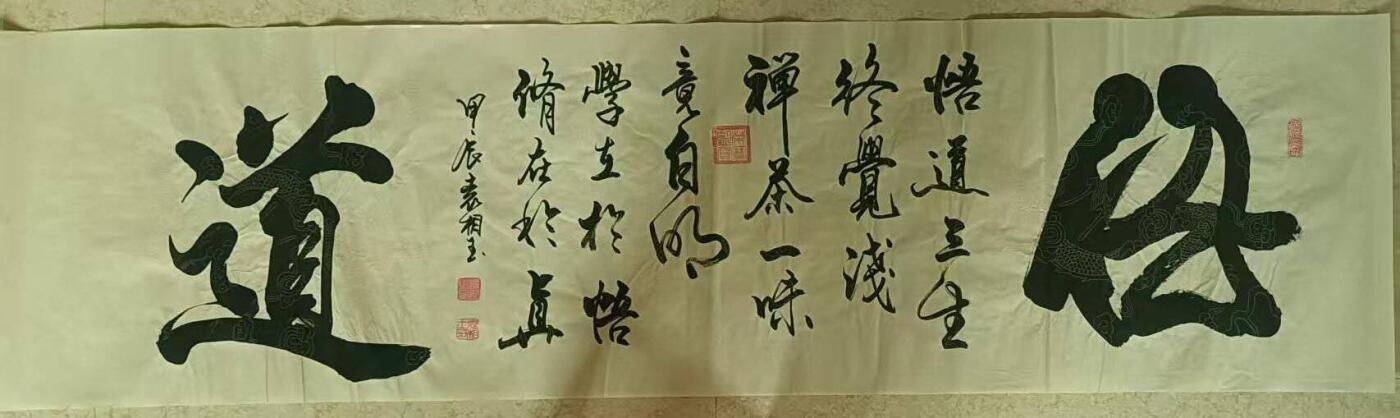 悟道三生
終覺淺
禪茶一味
竟自明
學在於悟
脩在於真
甲辰袁相玉
道